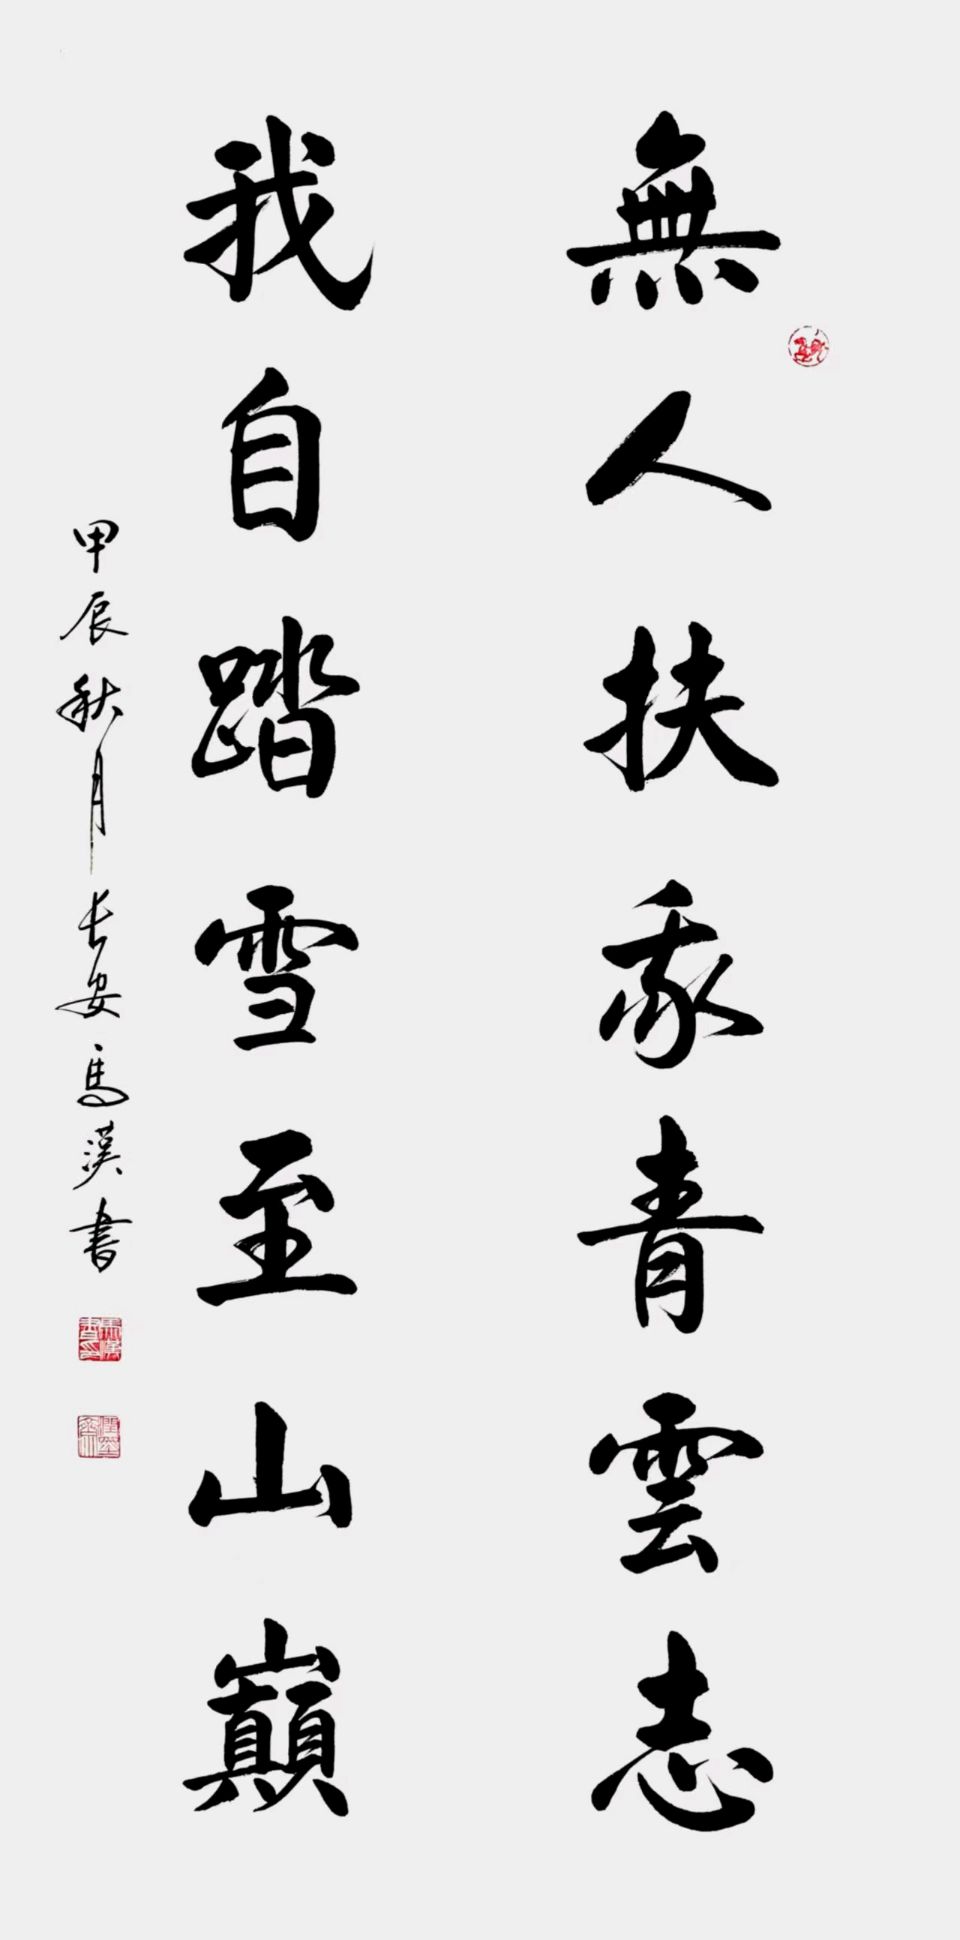 無人扶我青雲志
我自踏雪至山巔
甲辰秋月長安馬漢書